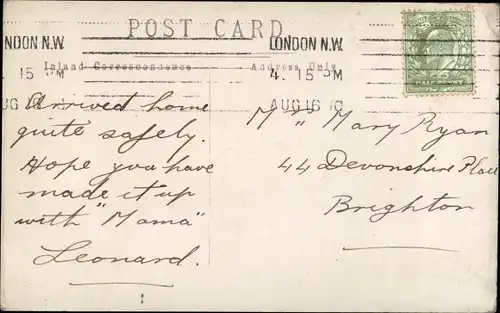 POST CARD
LONDON N.W.
LONDON N.W.
Inland Correspondence
Address Only
15 PM
4. 15 PM
AUG 16 10
Arrived home
quite safely.
Hope you have
made it up
with "Mama"
Leonard.
Mary Ryan
44 Devonshire Place
Brighton